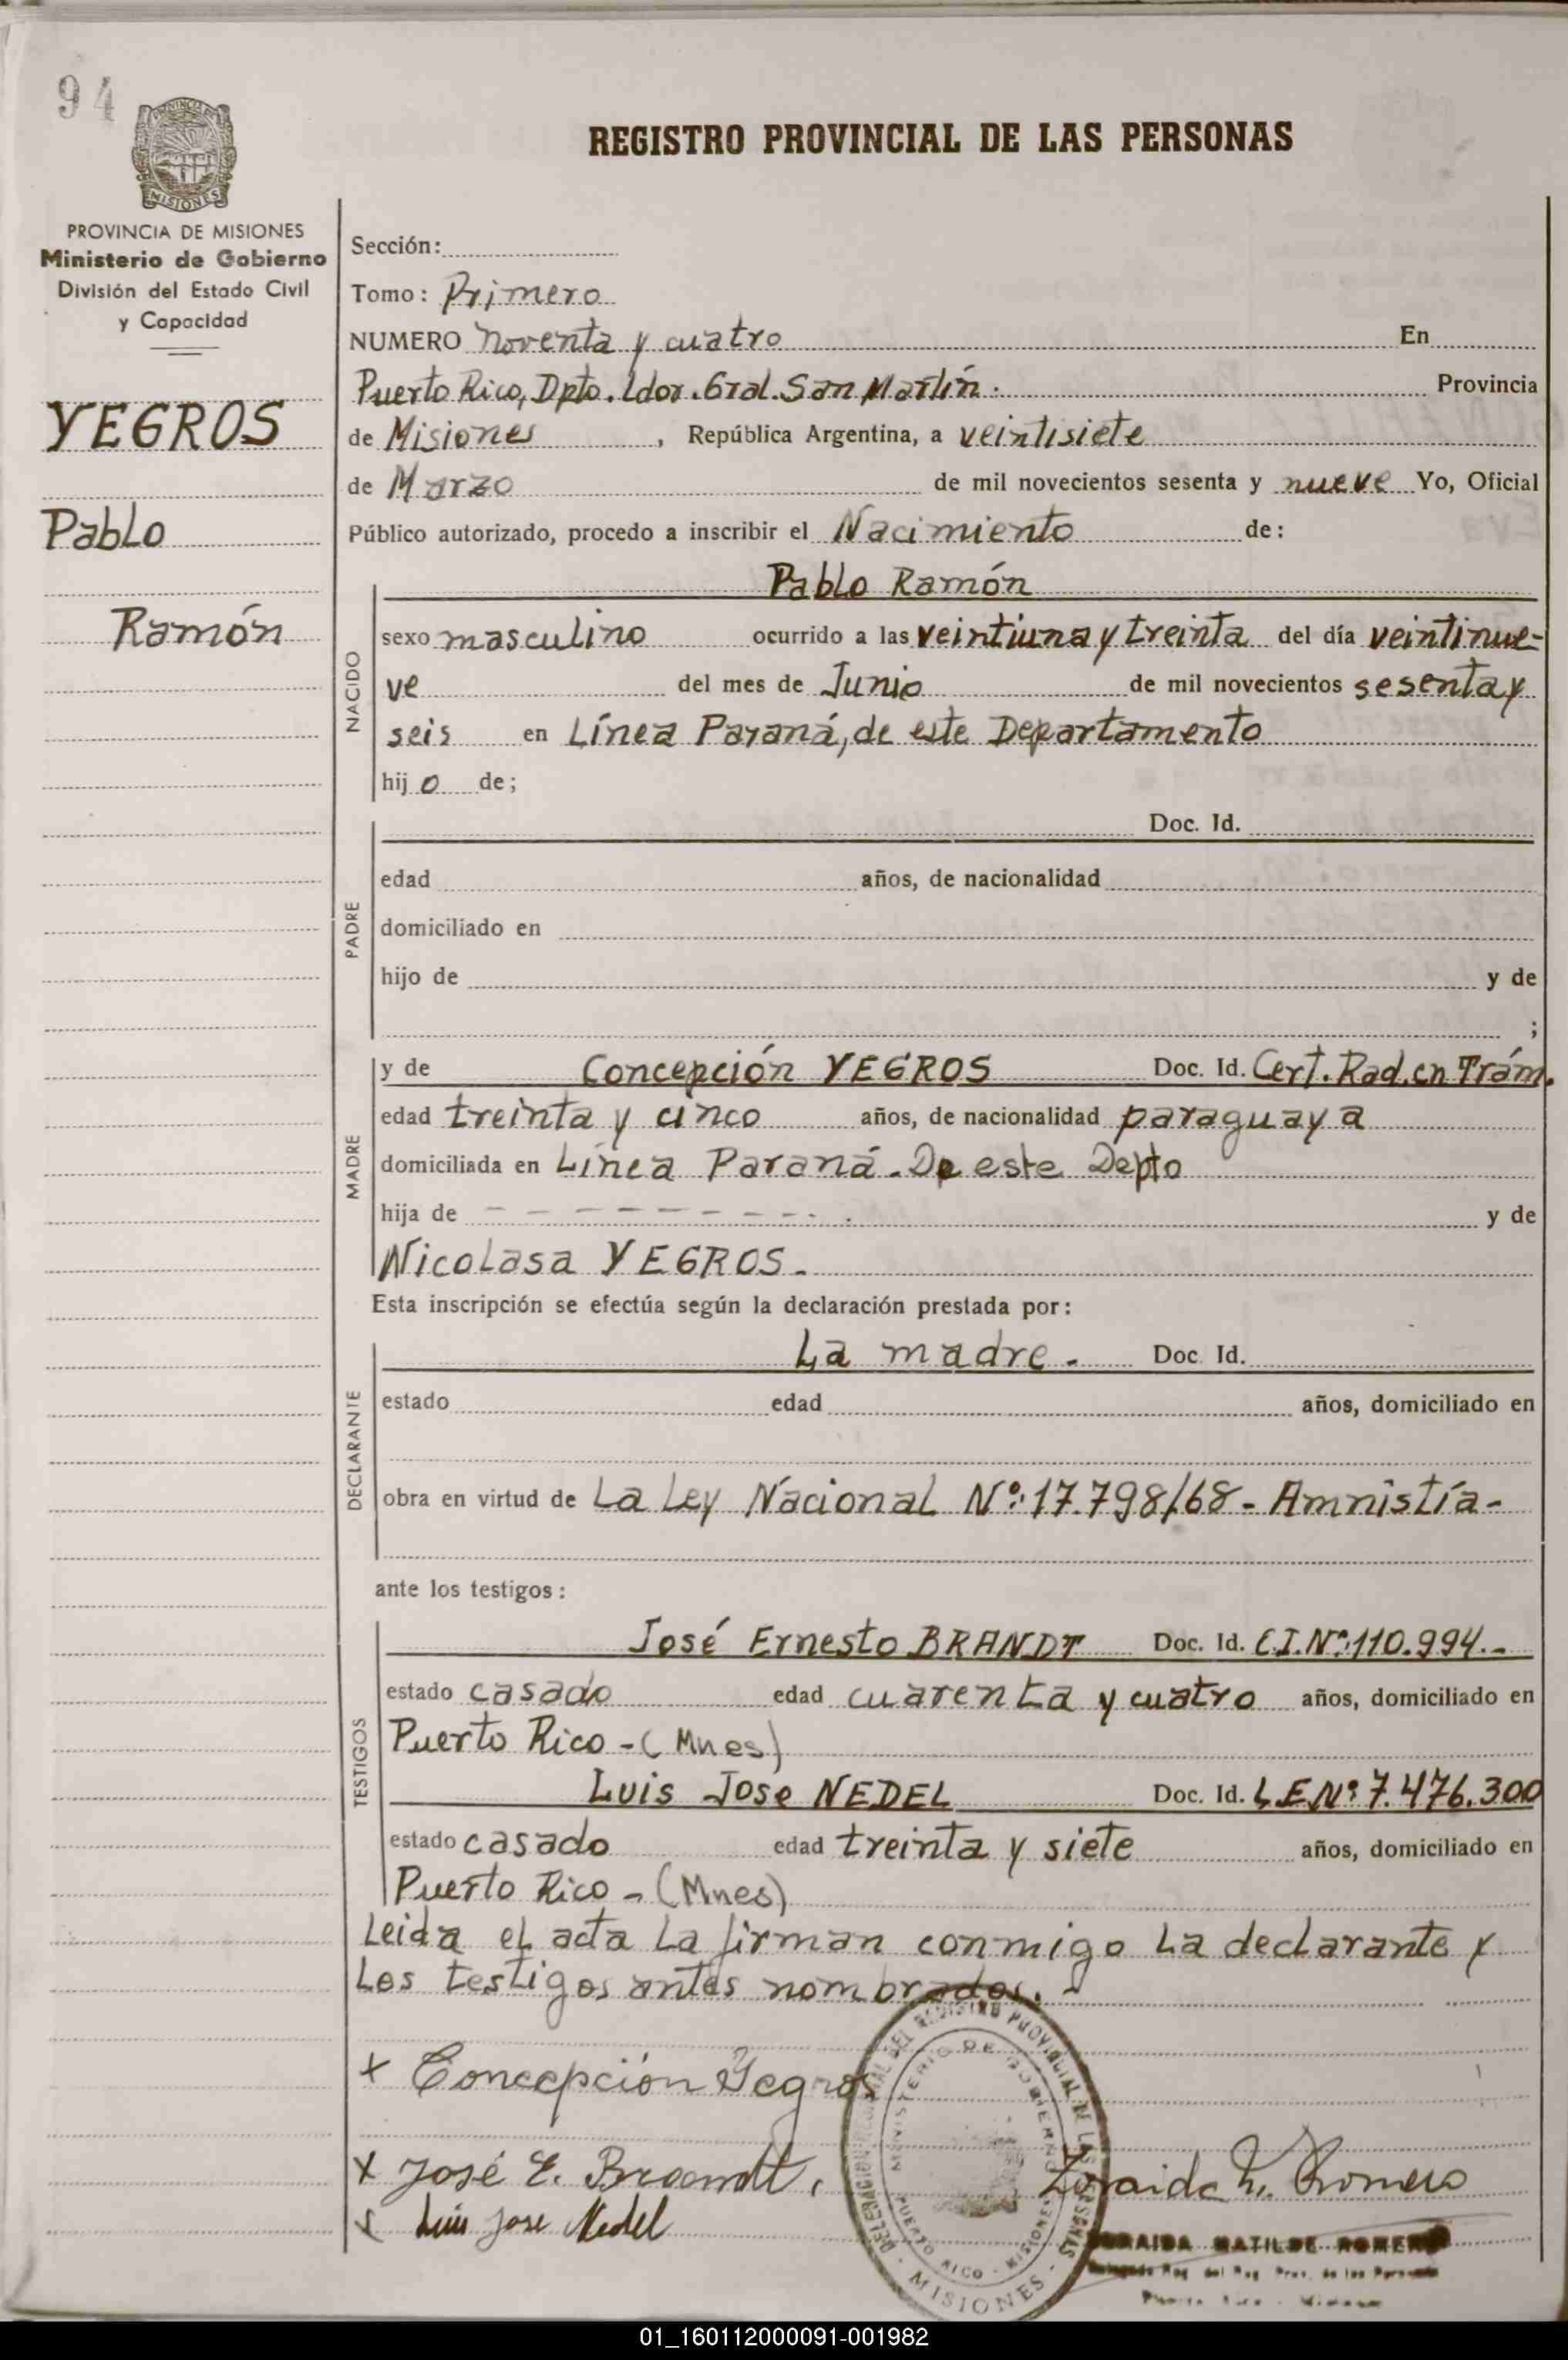 94
PROVINCIA DE
MISIONES
PROVINCIA DE MISIONES
Ministerio de Gobierno
División del Estado Civil
y Capacidad
YEGROS
Pablo
Ramón
REGISTRO PROVINCIAL DE LAS PERSONAS
Sección:
Tomo: Primero
NUMERO Noventa y cuatro En
Puerto Rico, Dpto. Ldor. Gral. San Martín. Provincia
de Misiones, República Argentina, a veintisiete
de Marzo de mil novecientos sesenta y nueve Yo, Oficial
Público autorizado, procedo a inscribir el Nacimiento de:
NACIDO
Pablo Ramón
sexo masculino ocurrido a las veintiuna y treinta del día veintinue-
ve del mes de Junio de mil novecientos sesenta y
seis en Línea Paraná, de este Departamento
hijo de;
PADRE
Doc. Id.
edad años, de nacionalidad
domiciliado en
hijo de y de
;
MADRE
y de Concepción YEGROS Doc. Id. Cert. Rad. en Trám.
edad treinta y cinco años, de nacionalidad paraguaya
domiciliada en Línea Paraná. De este Depto
hija de - - - - - - - - - . y de
Nicolasa YEGROS.
Esta inscripción se efectúa según la declaración prestada por:
DECLARANTE
La madre. Doc. Id.
estado edad años, domiciliado en
obra en virtud de La Ley Nacional Nº: 17.798/68 - Amnistía -
ante los testigos:
TESTIGOS
José Ernesto BRANDT Doc. Id. C.I.Nº: 110.994.-
estado casado edad cuarenta y cuatro años, domiciliado en
Puerto Rico - (Mnes)
Luis Jose NEDEL Doc. Id. L.E.Nº 7.476.300
estado casado edad treinta y siete años, domiciliado en
Puerto Rico - (Mnes)
Leida el acta la firman conmigo la declarante y
los testigos antes nombrados. -
x Concepción Yegros
x José E. Brandt.
x Luis Jose Nedel
DEL REGISTRO PROVINCIAL DE LAS PERSONAS
MINISTERIO DE GOBIERNO
PUERTO RICO - MISIONES
- MISIONES -
Zoraida M. Romero
ZORAIDA MATILDE ROMERO
del Reg. Prov. de las Personas
Puerto Rico - Misiones
01_160112000091-001982